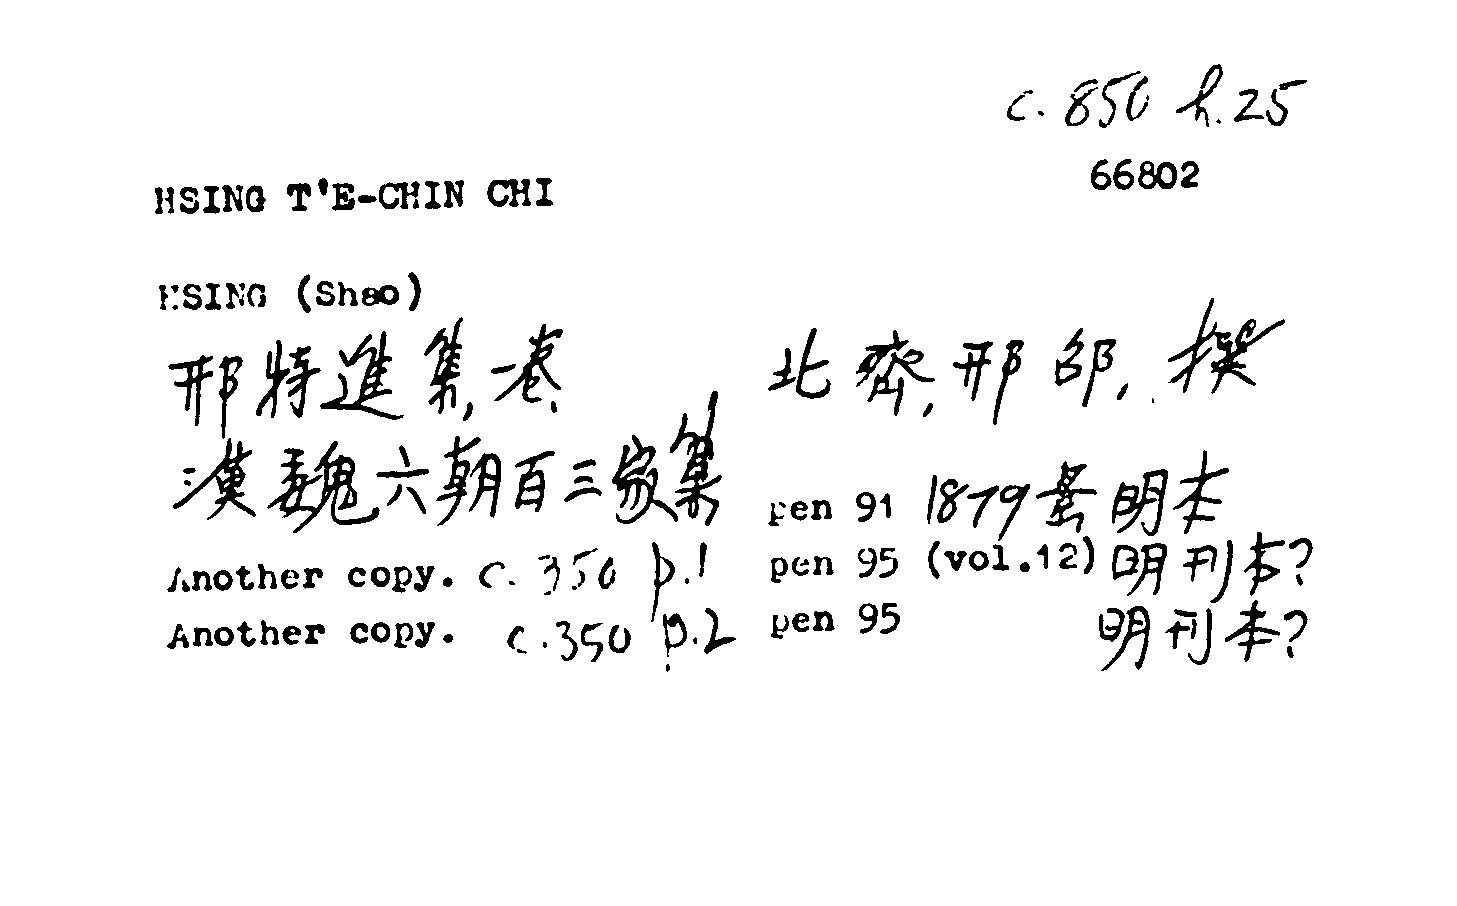 c. 850 h. 25
66802
HSING T'E-CHIN CHI
HSING (Shao)
邢特進集, 一卷. 北齊, 邢邵, 撰
漢魏六朝百三家集 pen 91 1879 景明本
Another copy. c. 350 p.1 pen 95 (vol.12) 明刊本?
Another copy. c.350 p.2 pen 95 明刊本?